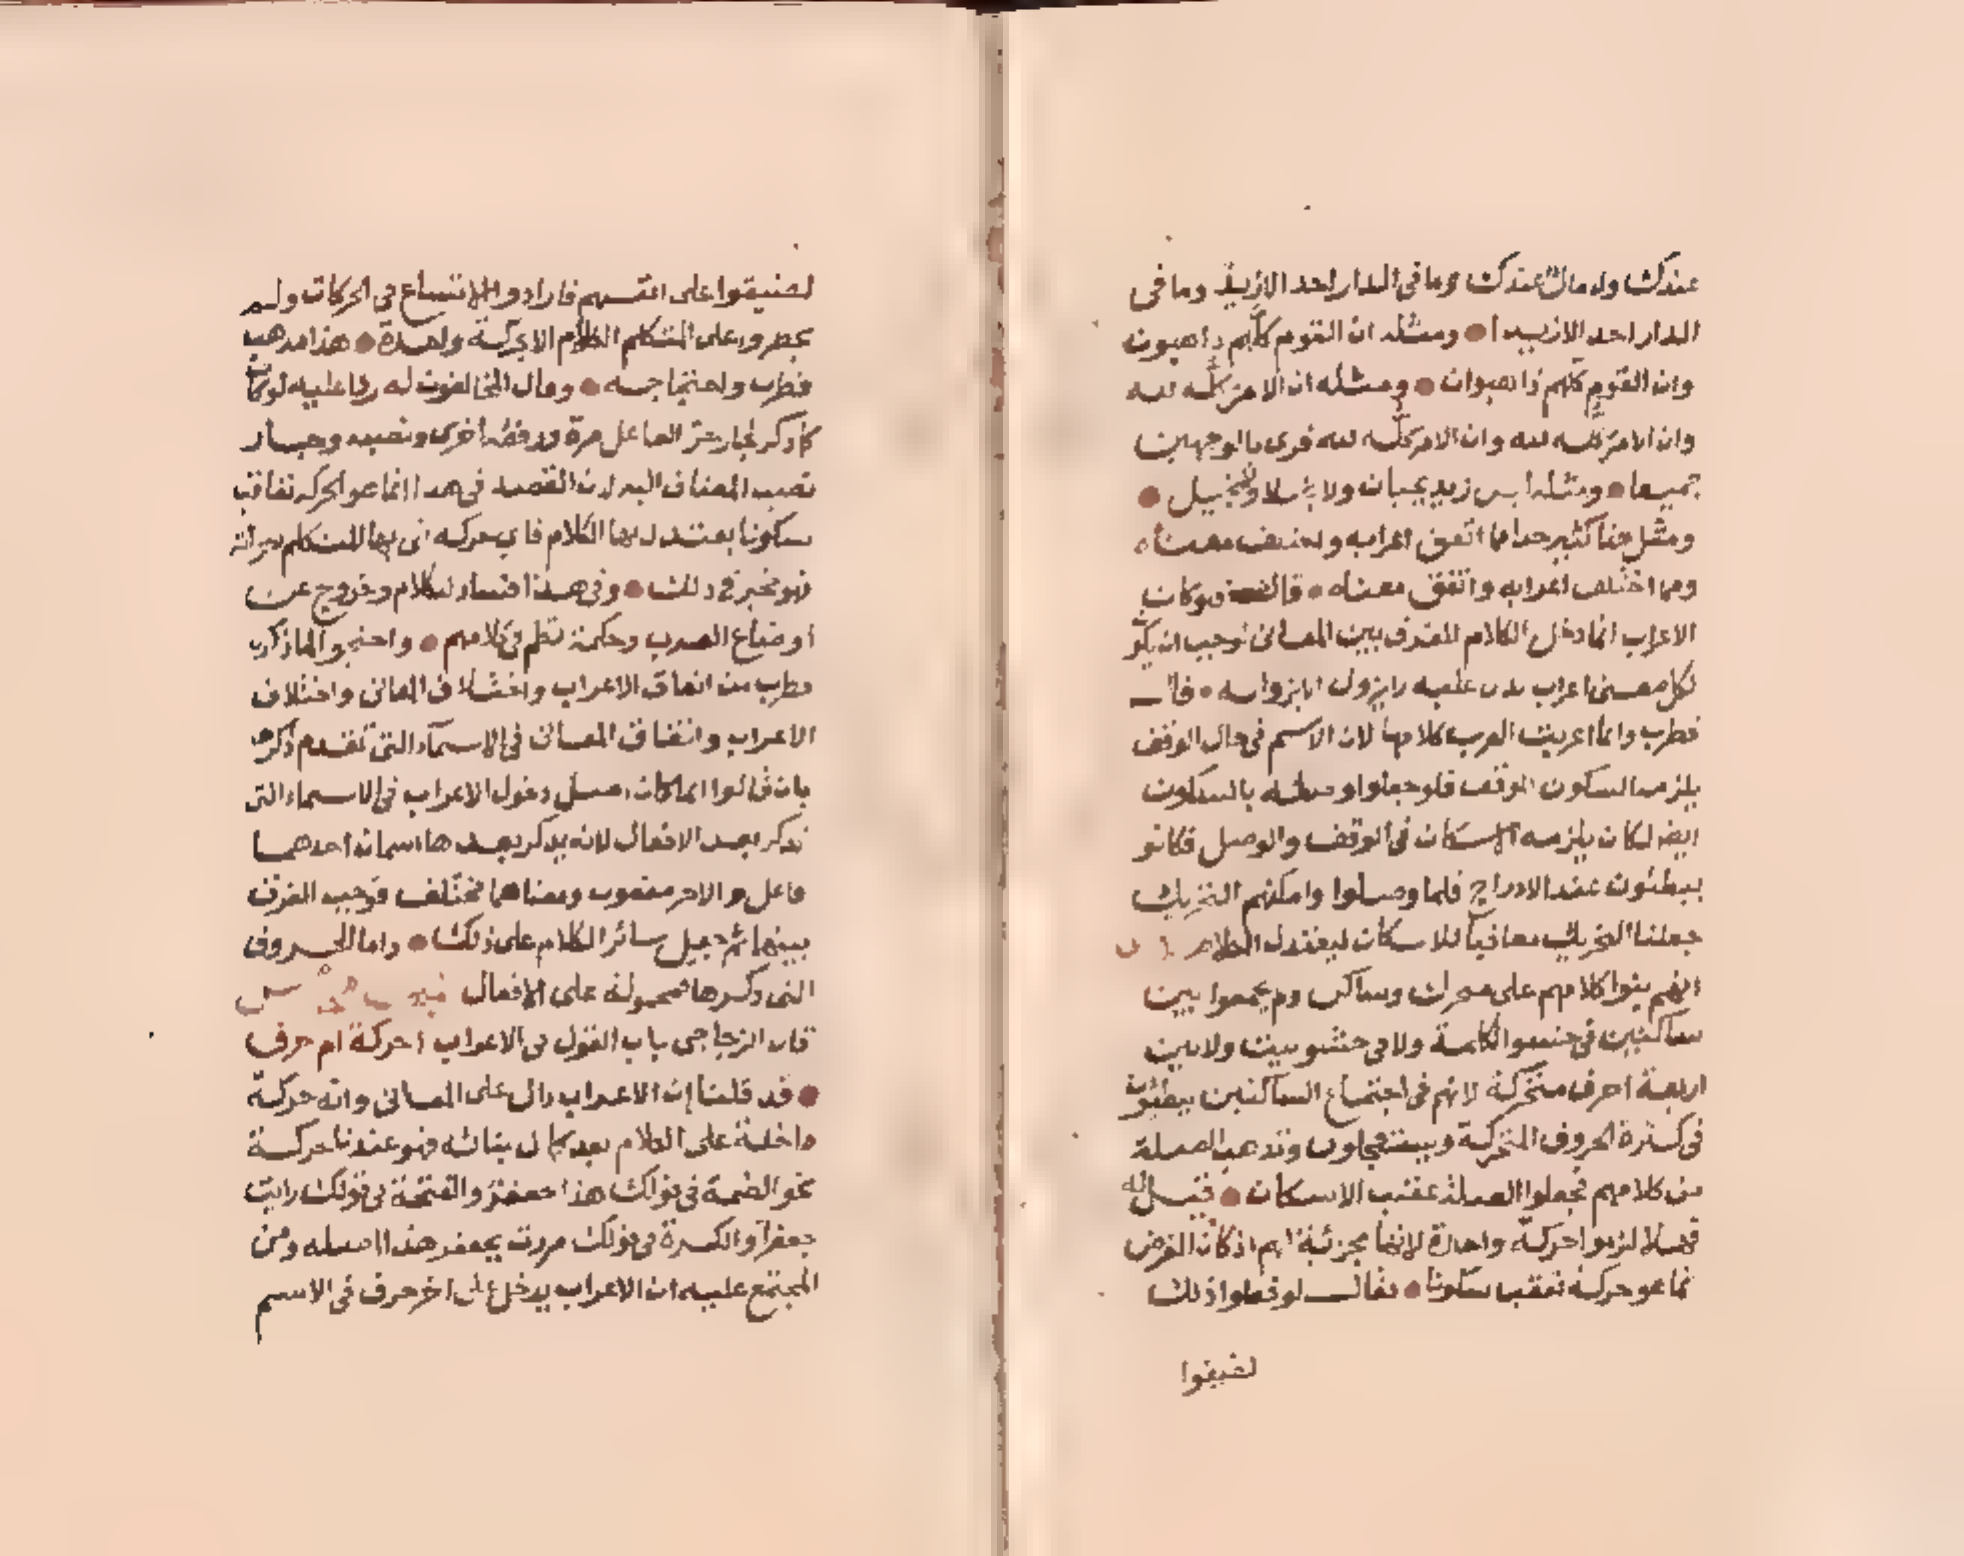 عندك ولا مالٌ عندك وما في الدار احد الا زيدٌ وما في
الدار احد الا زيدا ومثله ان القوم كلَّهم ذاهبون
وان القوم كلهم ذاهبون ومثله ان الامر كلَّه لله
وان الامر كله لله وان الامر كلَّه لله قرئ بالوجهين
جميعا ومثله ليس زيد بجبان ولا بخيلا ولا بخيل
ومثل هذا كثير جدا مما اتفق اعرابه واختلف معناه
ومما اختلف اعرابه واتفق معناه قال فلو كان
الاعراب انما دخل الكلام للفرق بين المعاني لوجب ان يكو
لكل معنى اعراب يدل عليه لا يزول الا بزواله قال
قطرب وانما اعربت العرب كلامها لان الاسم في حال الوقف
يلزمه السكون للوقف فلو جعلوا وصله بالسكون
ايضا لكان يلزمه الاسكان في الوقف والوصل فكانوا
يبطئون عند الادراج فلما وصلوا وامكنهم التحريك
جعلنا التحريك معاقبا للاسكان ليعتدل الكلام
انهم بنوا كلامهم على متحرك وساكن ولم يجمعوا بين
ساكنين في حشو الكلمة ولا في حشو بيت ولا بين
اربعة احرف متحركة لانهم في اجتماع الساكنين يبطئون
في كثرة الحروف المتحركة ويستعجلون وتذهب المهلة
من كلامهم فجعلوا الحركة عقب الاسكان فقيل له
فهلا لزموا حركة واحدة لانها مجزئة لهم اذ كان الغرض
انما هو حركة تعقب سكونا فقال لو فعلوا ذلك
لضيقوا
لضيقوا على انفسهم فارادوا الاتساع في الحركات ولم
يحظروا على المتكلم الكلام الا بحركة واحدة هذا مذهب
قطرب واحتجاجه وقال المخالفون له ردا عليه لو كان
كما ذكر لجاز جر الفاعل مرة ورفعه أخرى ونصبه وجاز
نصب المضاف اليه لان القصد في هذا انما هو الحركة تعاقب
سكونا يعتدل بها الكلام فاي حركة اتى بها المتكلم اجزأته
فهو مخير في ذلك وفي هذا افساد للكلام وخروج عن
اوضاع العرب وحكمة نظم كلامهم واحتجوا لما ذكره
قطرب من اتفاق الاعراب واختلاف المعاني واختلاف
الاعراب واتفاق المعاني في الاسماء التي تقدم ذكرها
بان قالوا انما كان اصل دخول الاعراب في الاسماء التي
تذكر بعد الافعال لانه يذكر بعدها اسمان احدهما
فاعل والاخر مفعول ومعناهما مختلف فوجب الفرق
بينهما ثم جعل سائر الكلام على ذلك واما الحروف
التي ذكرها فمحمولة على الافعال
قال الزجاجي باب القول في الاعراب أحركة ام حرف
قد قلنا إن الاعراب دال على المعاني وانه حركة
داخلة على الكلام بعد كمال بنائه فهو عندنا حركة
نحو الضمة في قولك هذا جعفرٌ والفتحة في قولك رايت
جعفراً والكسرة في قولك مررت بجعفر هذا اصله ومن
المجتمع عليه ان الاعراب يدخل على اخر حرف في الاسم